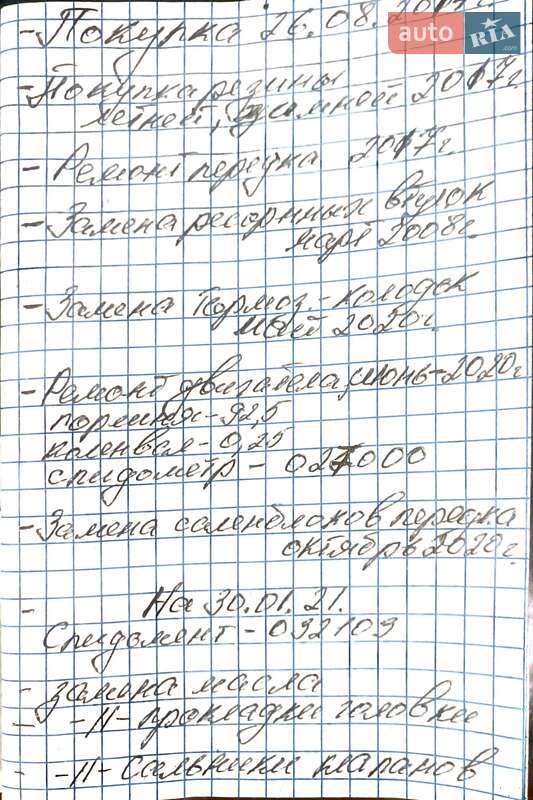 auto RIA .com
- Покупка 26.08.2017г.
- Покупка резины
летней, зимней 2017г
- Ремонт передка 2017г.
- Замена рессорных втулок
март 2008г.
- Замена тормоз.- колодок
май 2020г.
- Ремонт двигателя, июнь-2020г
поршня - 92,5
коленвал - 0,25
спидометр - 027000
- Замена саленблоков передка
октябрь 2020г.
- На 30.01.21.
Спидомент - 032109
- замена масла
- -//- прокладки головки
- -//- сальники клапанов